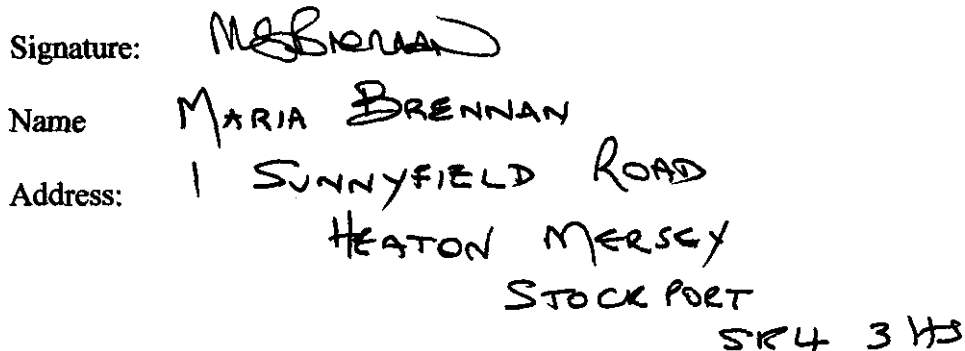 Signature: MSBrennan
Name MARIA BRENNAN
Address: 1 SUNNYFIELD ROAD
HEATON MERSEY
STOCKPORT
SK4 3HS